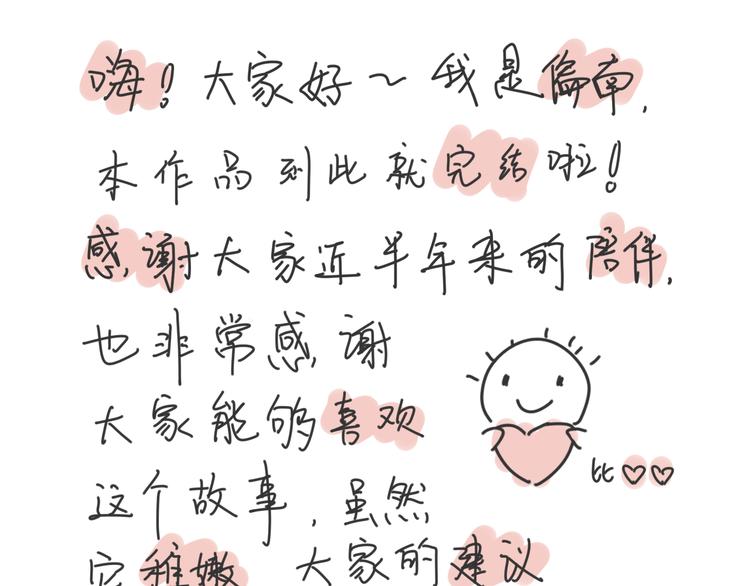 嗨！大家好～我是偏南，
本作品到此就完结啦！
感谢大家近半年来的陪伴，
也非常感谢
大家能够喜欢
比
这个故事，虽然
它稚嫩 大家的建议